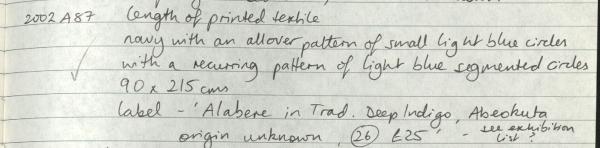 2002 A87 length of printed textile
navy with an allover pattern of small light blue circles
with a recurring pattern of light blue segmented circles
90 x 215 cms
label - 'Alabere in Trad. Deep Indigo, Abeokuta
origin unknown, 26 £25' - see exhibition
list?